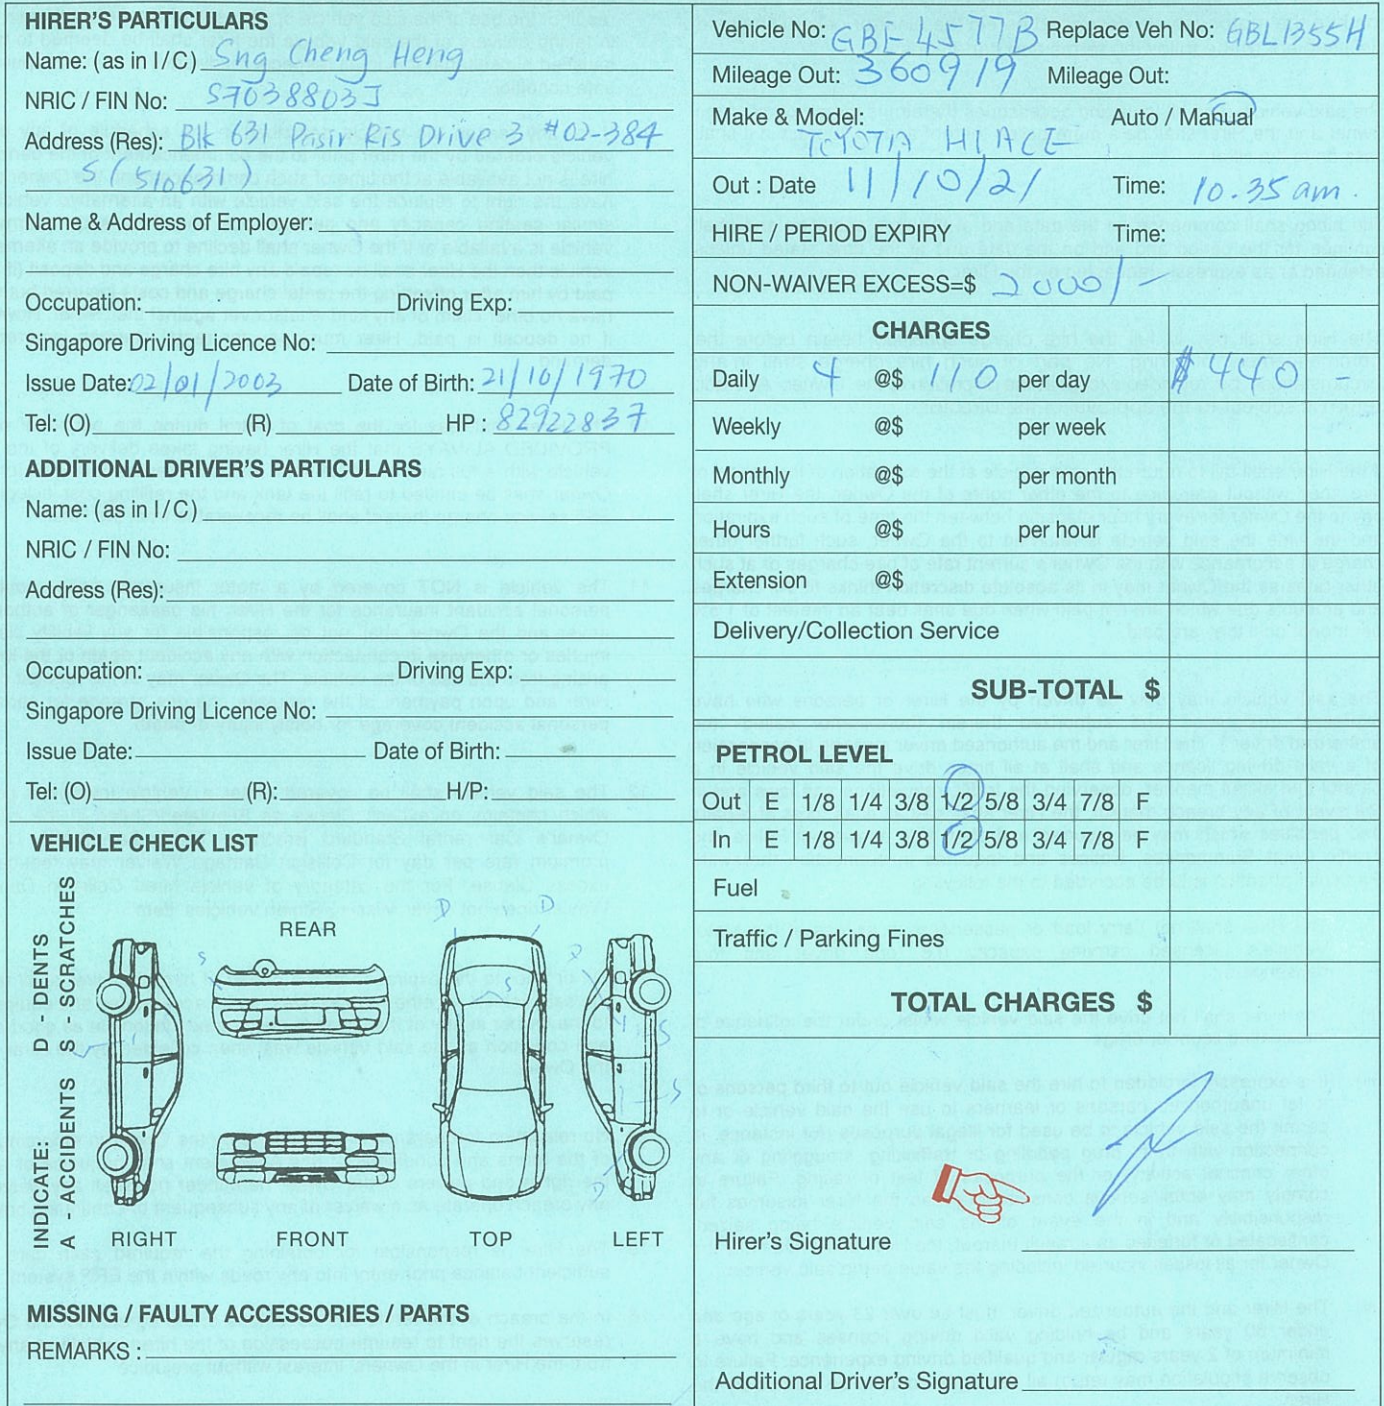 HIRER'S PARTICULARS
Name: (as in I/C) Sng Cheng Heng
NRIC / FIN No: S7038803J
Address (Res): Blk 631 Pasir Ris Drive 3 #02-384
S(510631)
Name & Address of Employer:
Occupation: Driving Exp:
Singapore Driving Licence No:
Issue Date: 02/01/2003 Date of Birth: 21/10/1970
Tel: (O) (R) HP : 82922837
ADDITIONAL DRIVER'S PARTICULARS
Name: (as in I/C)
NRIC / FIN No:
Address (Res):
Occupation: Driving Exp:
Singapore Driving Licence No:
Issue Date: Date of Birth:
Tel: (O) (R): H/P:
VEHICLE CHECK LIST
INDICATE: D - DENTS
A - ACCIDENTS S - SCRATCHES
REAR
D D
S
S
S
S
RIGHT FRONT TOP LEFT
MISSING / FAULTY ACCESSORIES / PARTS
REMARKS :
Vehicle No: GBE 4577B Replace Veh No: GBL1355H
Mileage Out: 360919 Mileage Out:
Make & Model: Auto / Manual
TOYOTA HIACE
Out : Date 11/10/21 Time: 10.35 am.
HIRE / PERIOD EXPIRY Time:
NON-WAIVER EXCESS=$ 2000/-
CHARGES
Daily 4 @$ 110 per day $440 -
Weekly @$ per week
Monthly @$ per month
Hours @$ per hour
Extension @$
Delivery/Collection Service
SUB-TOTAL $
PETROL LEVEL
Out E 1/8 1/4 3/8 1/2 5/8 3/4 7/8 F
In E 1/8 1/4 3/8 1/2 5/8 3/4 7/8 F
Fuel
Traffic / Parking Fines
TOTAL CHARGES $
Hirer's Signature
Additional Driver's Signature